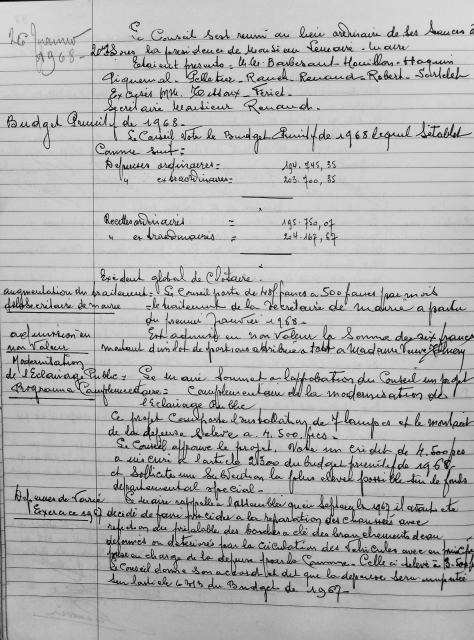 26 Janvier
1968-
Le Conseil s'est réuni au lieu ordinaire de ses Séances à
20h sous la présidence de Monsieur Lemaire - Maire
Etaient présents = M.M. Barbesant Houillon - Hoquin
Piquemal - Pelletier - Rauch - Renaud - Robert -
Excusés MM. Thiriet
Secrétaire Monsieur Renaud -
Budget Primitif de 1968 -
Le Conseil vote le Budget Primitif de 1968 lequel s'établit
Comme suit =
Dépenses ordinaires = 194.745,35
" extraordinaires = 203.700,35
Recettes ordinaires = 195.750,07
" extraordinaires = 204.167,67
Excédent global de Clôture.
augmentation du traitement = Le Conseil porte de 481 francs à 500 francs par mois
du Secrétaire de mairie = le traitement de la Secrétaire de mairie à partir
du premier Janvier 1968 -
admission en Est admise en non Valeur la Somme de six francs
non Valeur montant d'un lot de portions attribuée à tort à Madame Veuve
Modernisation
de l'Eclairage Public = Le maire Soumet à l'approbation du Conseil un projet
Programme Complémentaire = Complémentaire de la modernisation de
l'Eclairage Public
Ce projet Comporte l'installation de 7 lampes et le montant
de la dépense s'élève à 4.500 frcs -
Le Conseil approuve le projet. Vote un crédit de 4.500 frcs
à inscrire à l'article 2300 du budget primitif de 1968 -
et Sollicite une Subvention la plus élevée possible du fonds
départemental spécial -
Dépenses de Voirie Le maire rappelle à l'assemblée qu'en Septembre 1967 il avait été
Exercice 1967 décidé de faire procéder à la réparation des chaussées avec
réfection au préalable des bouches à clé des branchements d'eau
déformés ou détériorés par la circulation des véhicules avec en principe
prise en charge de la dépense par la Commune. Celle ci s'élève à 3.500 frs
Le Conseil donne son accord et dit que la dépense sera imputée
sur l'article 6313 du Budget de 1967 -